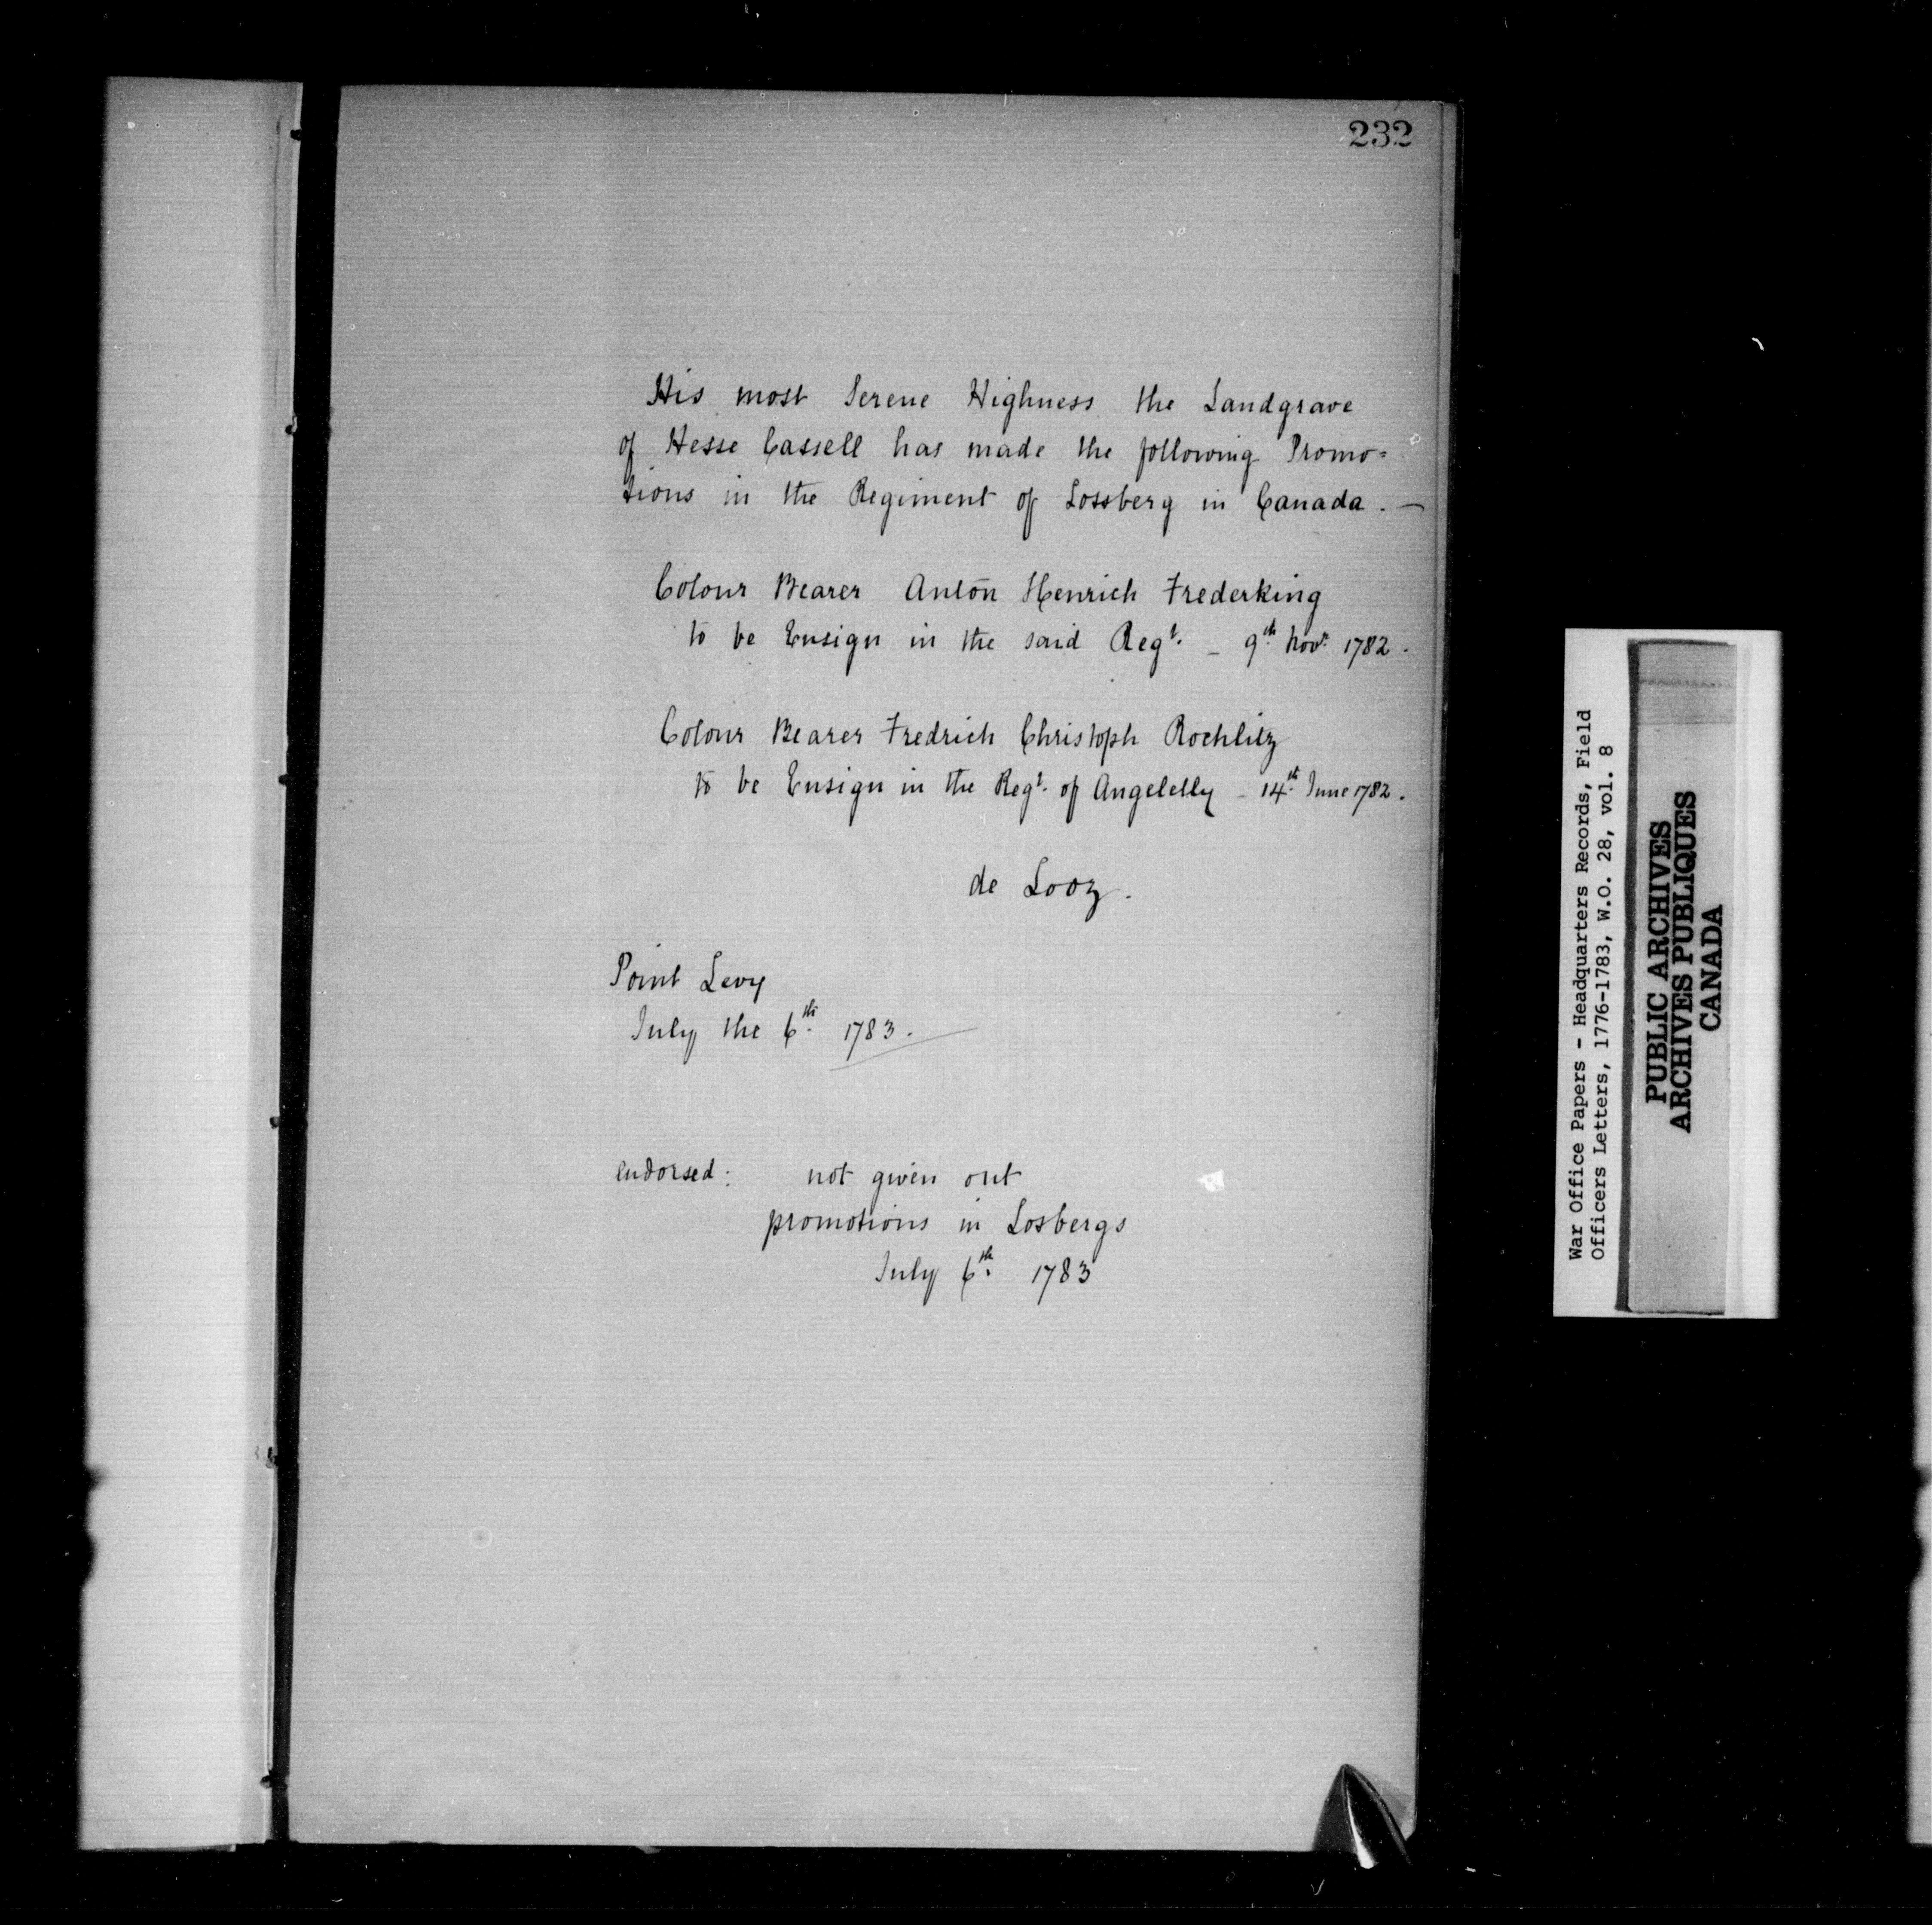 232
His most Serene Highness the Landgrave
of Hesse Cassell has made the following Promo=
tions in the Regiment of Lossberg in Canada. —
Colour Bearer Anton Henrich Frederking
to be Ensign in the said Regt. – 9th Novr. 1782.
Colour Bearer Fredrich Christoph Rochlitz
to be Ensign in the Regt. of Angelelly – 14th June 1782.
de Looz.
Point Levy
July the 6th 1783.
endorsed: not given out
promotions in Losbergs
July 6th 1783
War Office Papers - Headquarters Records, Field
Officers Letters, 1776-1783, W.O. 28, vol. 8
PUBLIC ARCHIVES
ARCHIVES PUBLIQUES
CANADA